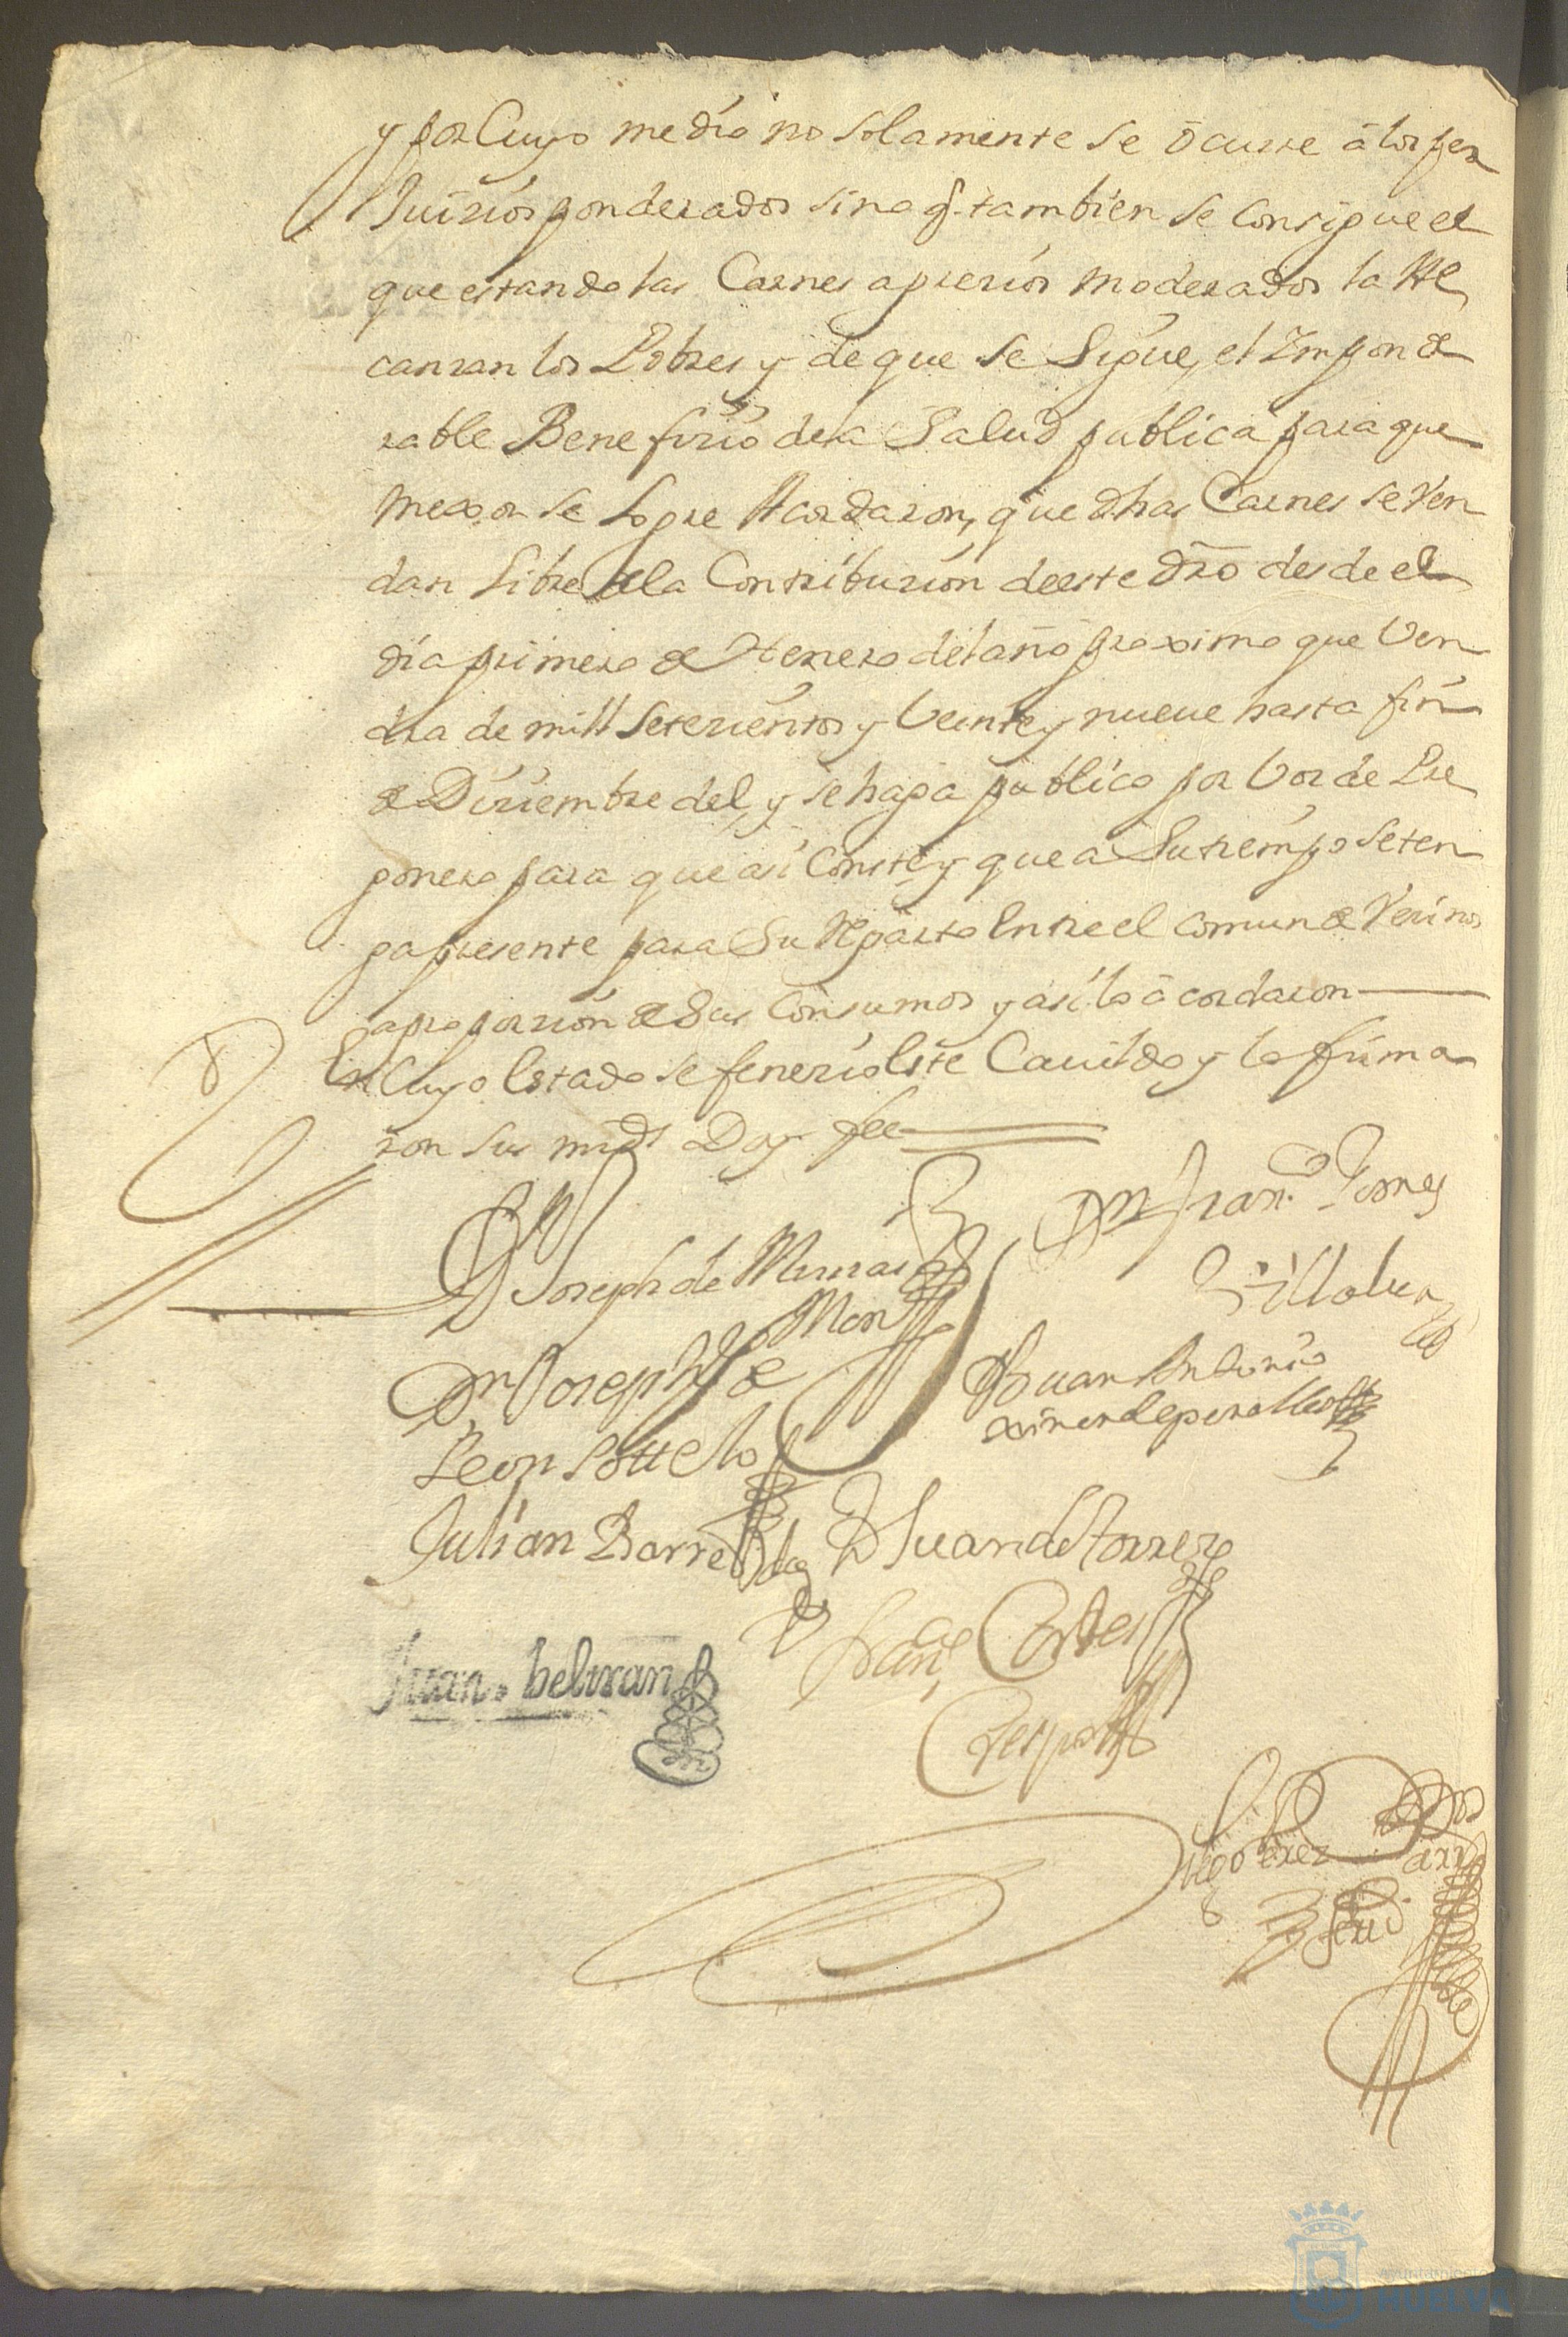 y por Cuyo medio no Solamente Se ocurre à los per
Juicios ponderados sino q.e tambien Se Consigue el
que estando las Carnes a precios moderados la Al
canzan los Pobres y de que Se Sigue, el Impon de
rable Beneficio de la Salud publica para que
mexor se Logre Acordaron, que dhas Carnes se Ven
dan Libre de la Contribucion de este dro desde el
dia primero de Henero del año proximo que Ven
dra de mill Setecientos y Veinte y nueve hasta fin
de Diciembre del, y se haga publico por Voz de Pre
gonero para que asi Conste y que a Su tiempo se ten
ga presente para Su Reparto Entre el Comun de Vecinos
a proporcion de Sus Consumos y asi lo acordaron
En Cuyo Estado se fenecio Este Cauildo y lo firma
ron sus mrds Doy fee
Dn Joseph de
Dn Fran.co Gomez
Mon
Villalua
Dn Joseph de
Juan Antonio
Leon Sottelo
Julian Barreda
Juan de Torres
Juan beltran
Franco Cortes
Crespo
Diego Perez
Essno